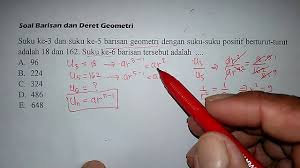 Soal Barisan dan Deret Geometri
Suku ke-3 dan suku ke-5 barisan geometri dengan suku-suku positif berturut-turut
adalah 18 dan 162. Suku ke-6 barisan tersebut adalah ....
A. 96
B. 224
C. 324
D. 486
E. 648
U₃ = 18 → ar³⁻¹ = ar²
U₅ = 162 → ar⁵⁻¹ = a
U₆ = ?
Uₙ = arⁿ⁻¹
U₃
U₅
ar²